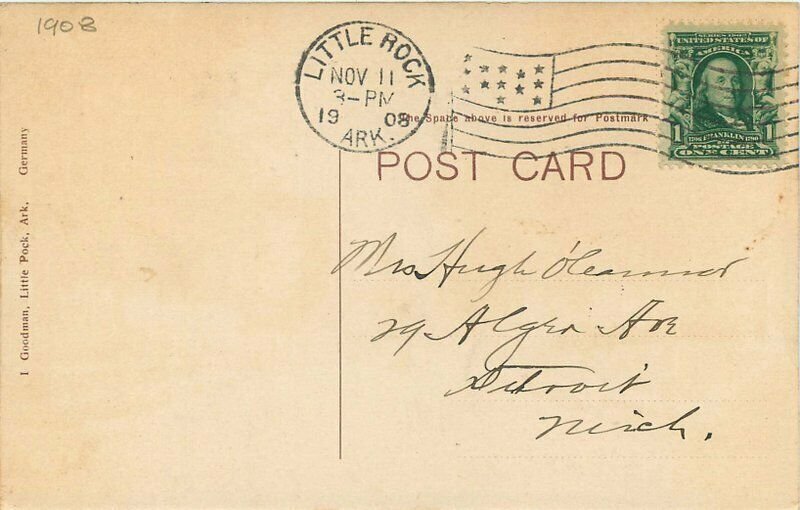 1908
LITTLE ROCK
NOV 11
3-PM
1908
ARK.
SERIES 1902
UNITED STATES OF
AMERICA
1 1706 FRANKLIN 1790 1
POSTAGE
ONE CENT
The Space above is reserved for Postmark
POST CARD
Mrs Hugh O'Connor
29 Alger Ave
Detroit
Mich.
I Goodman, Little Pock, Ark. Germany